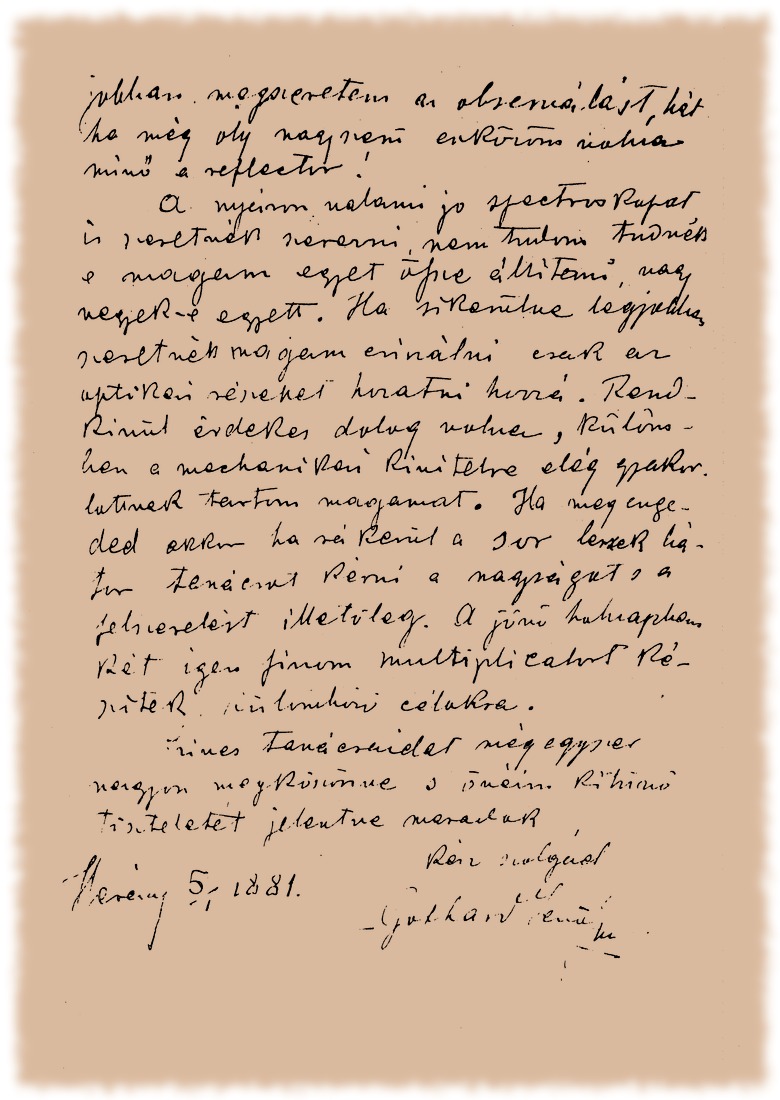 jobban megszeretem az observálást, hát
ha még oly nagyszerű eszközöm volna
minő a reflector!
A nyáron valami jó spectroskopat
is szeretnék szerezni, nem tudom tudnék
e magam egyet össze állitani, vagy
vegyek-e egyett. Ha sikerülne legjobban
szeretnék magam csinálni csak az
optikai részeket hozatni hozzá. Rend-
kivül érdekes dolog volna, különö-
ben a mechanikai kivitelre elég gyakor-
lottnak tartom magamat. Ha megenge-
ded akkor ha rá kerül a sor leszek bá-
tor tanácsot kérni a nagyságot s a
felszerelést illetőleg. A jövő holnapban
két igen finom multiplicatort ké-
szitek különböző célokra.
szives tanácsaidat még egyszer
nagyon megköszönve s őszinte kitünő
tiszteletét jelentve maradok
kész szolgád
Gothard Jenő
Herény 5/ 1881.